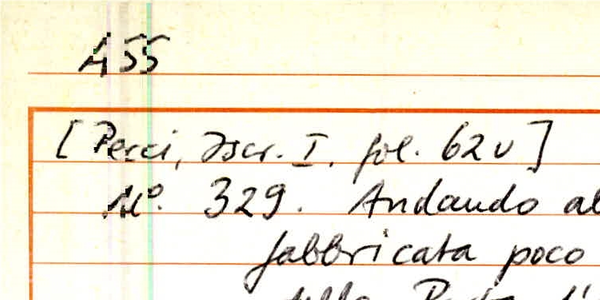 A 55
[Pecci, Iscr. I. fol. 62v]
N°. 329. Andando al
fabbricata poco
della Porta